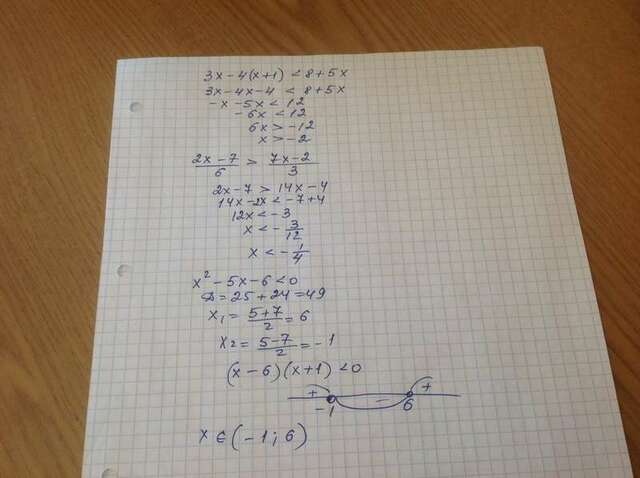 3x-4(x+1) < 8+5x
3x-4x-4 < 8+5x
-x-5x < 12
-6x < 12
6x > -12
x > -2
(2x-7)/6 > (7x-2)/3
2x-7 > 14x-4
14x-2x < -7+4
12x < -3
x < -3/12
x < -1/4
x² - 5x - 6 < 0
D = 25 + 24 = 49
x₁ = (5+7)/2 = 6
x₂ = (5-7)/2 = -1
(x-6)(x+1) < 0
+ - +
-1 6
x ∈ (-1; 6)